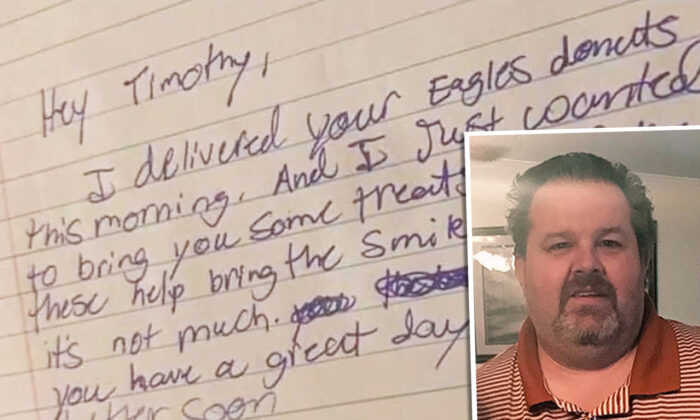 Hey Timothy,
I delivered your Eagles donuts
this morning. And I Just wanted
to bring you some treats
these help bring the smile
it's not much.
you have a great day
soon